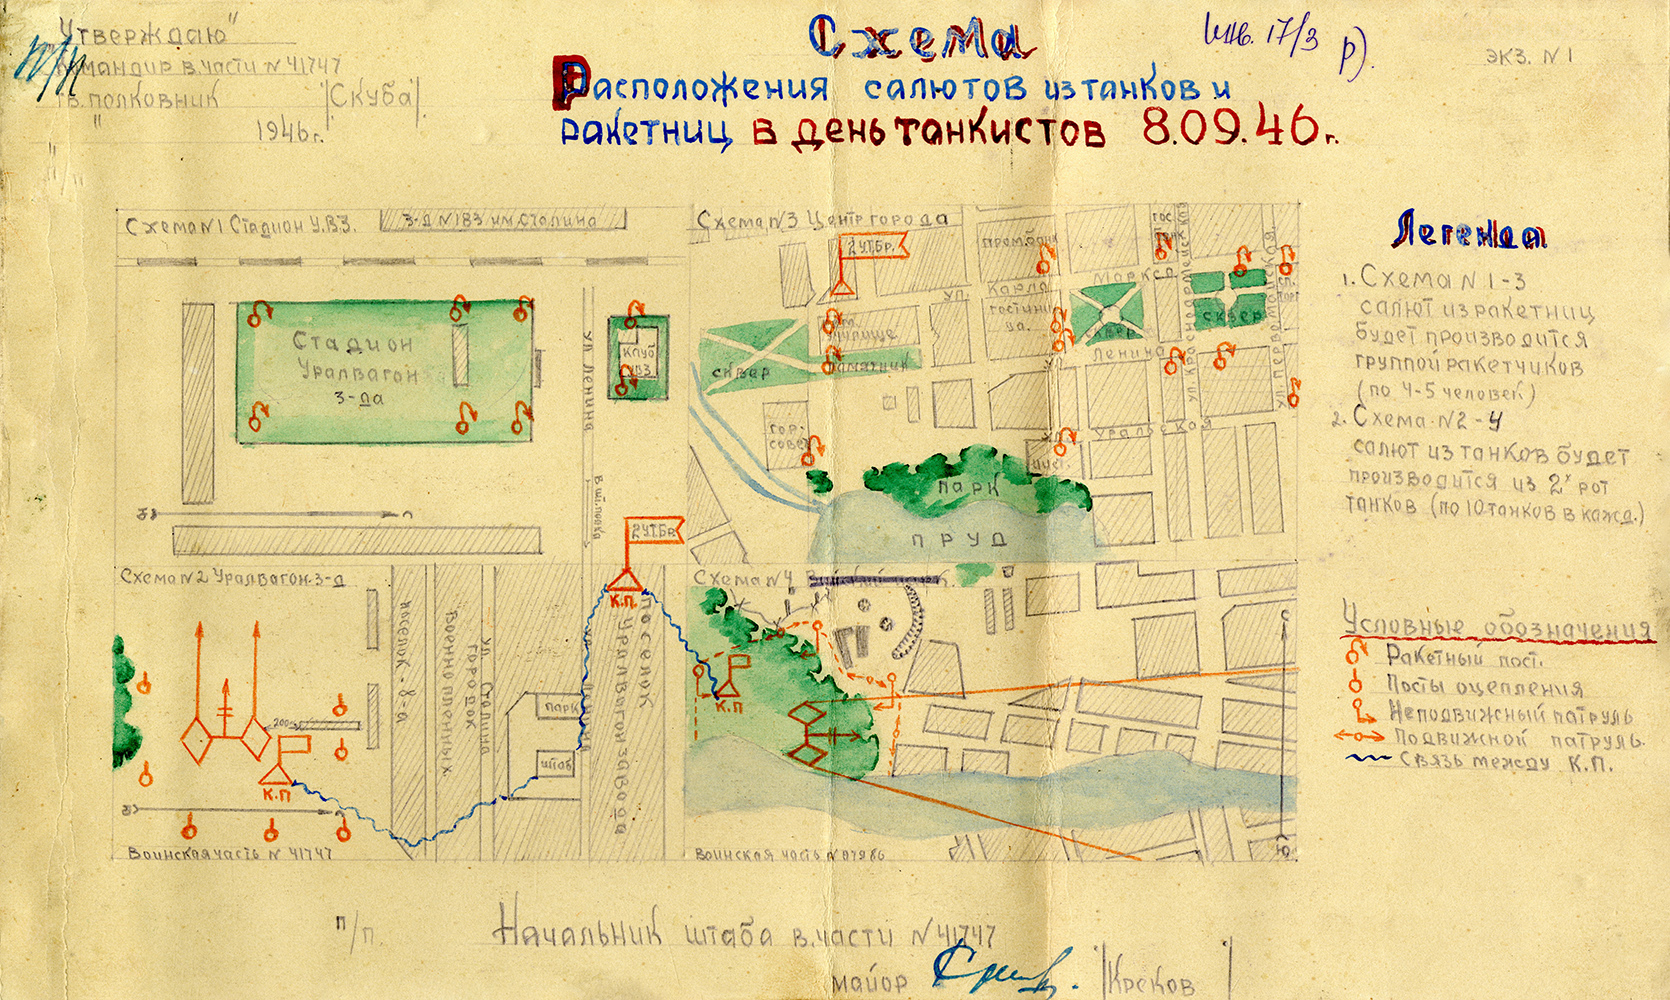 „Утверждаю"
Командир в.части №41747
гв. полковник |Скуба|.
" 1946г.
Схема
Расположения салютов из танков и
ракетниц в день танкистов 8.09.46г.
Инв. 17/3 р).
экз. №1
Схема №1 Стадион У.В.З.
З-д №183 им. Сталина
Стадион
Уралвагон
З-да
клуб
УВЗ
ул Ленина
Ю
С
Схема №3 Центр города
2 УТБр.
гос
банк
ул. Карла Маркса
гостини
ца.
училище
памятник
сквер
сквер
сквер
ул. Ленина
ул. Красноармейская
ул. Первомайская
гор-
совет
ул. Уральская
парк
пруд
Схема №2 Уралвагон.з-д
2 УТБр.
К.П.
поселок-8-а
Военнопленных
городок
ул Сталина
парк
штаб
ул Ленина
поселок
Уралвагонзавода
200м
К.П
Воинская часть №41747
Схема №4
К.П
Воинская часть №
Легенда
1. Схема №1-3
салют из ракетниц
будет производится
группой ракетчиков
(по 4-5 человек)
2. Схема №2-4
салют из танков будет
производится из 2х рот
танков (по 10 танков в кажд.)
Условные обозначения
Ракетный пост.
Посты оцепления
Неподвижный патруль
Подвижной патруль.
Связь между К.П.
п/п.
Начальник штаба в.части №41747
майор |Кресков|